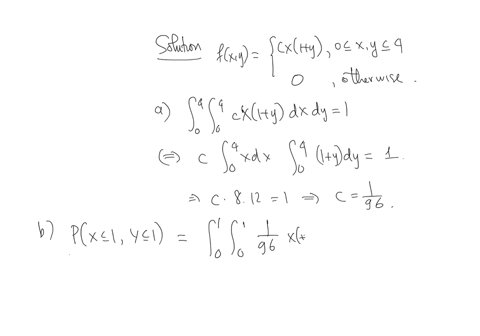 Solution f(x,y) = { Cx(1+y), 0 ≤ x,y ≤ 4
0, otherwise.
a) ∫₀⁴ ∫₀⁴ cx(1+y) dx dy = 1
(=) c ∫₀⁴ x dx ∫₀⁴ (1+y) dy = 1.
⇒ c . 8 . 12 = 1 ⇒ C = 1/96.
b) P(X≤1, Y≤1) = ∫₀¹ ∫₀¹ 1/96 x(